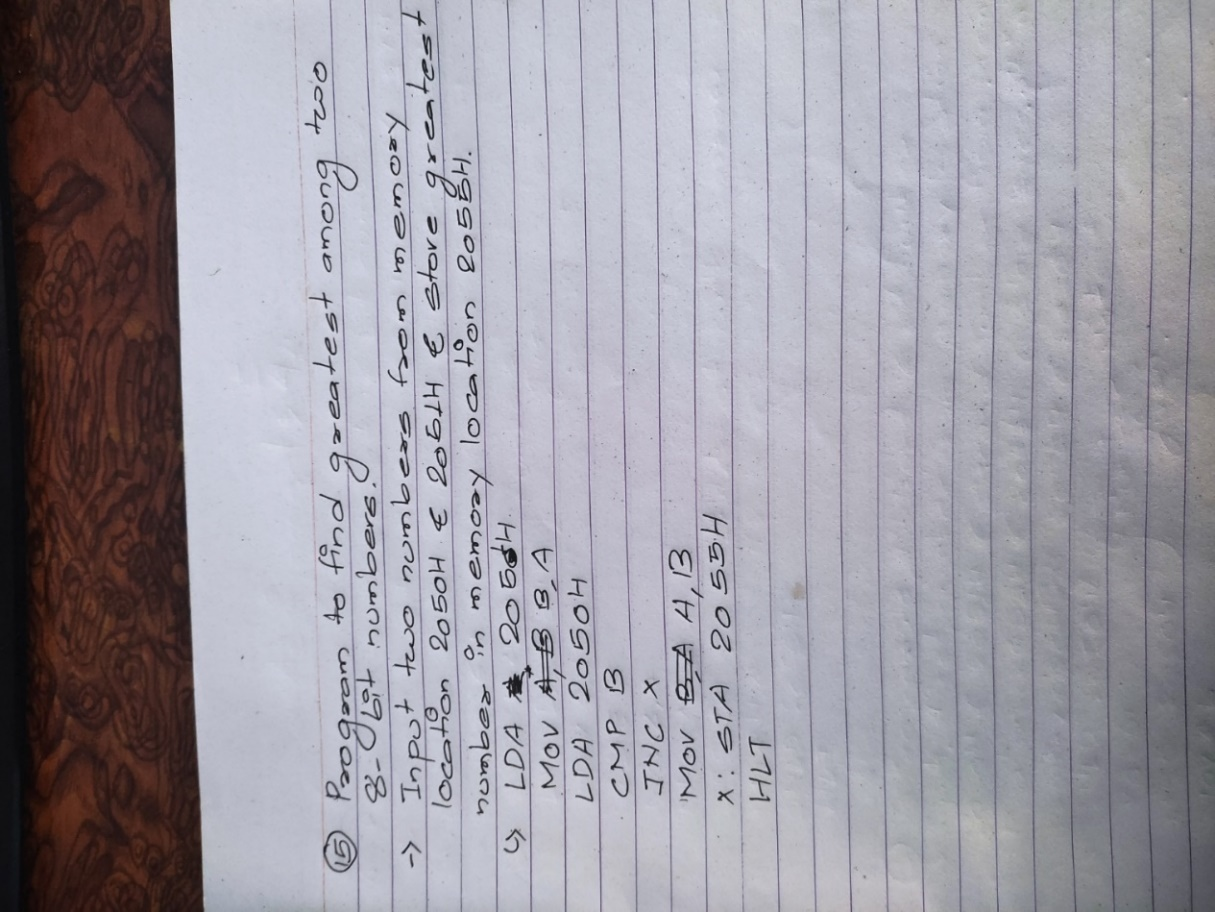 ⑤ Program to find greatest among two
8-bit numbers.
→ Input two numbers from memory
location 2050H & 2051H & store greatest
number in memory location 2055H.
↳ LDA 2051H.
MOV B,A
LDA 2050H
CMP B
JNC X
MOV A,B
X: STA 2055H
HLT